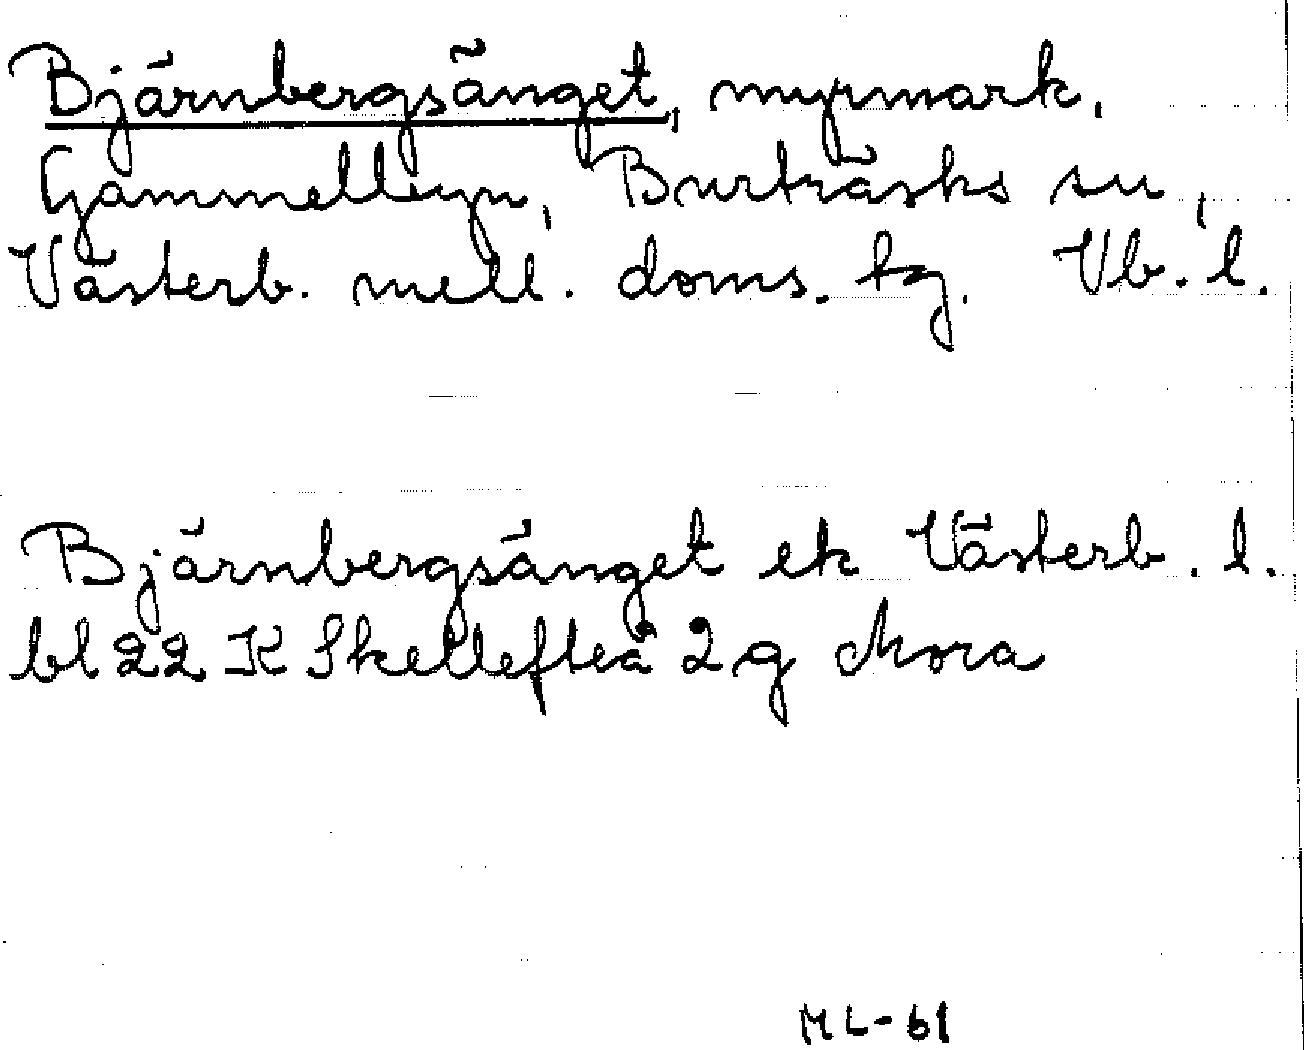 Bjärnbergsänget, myrmark,
Gammelbyn, Burträsks sn,
Västerb. mell. doms. tg. Vb. l.
Bjärnbergsänget ek Västerb. l.
bl 22 K Skellefteå 2 g Mora
ML-61